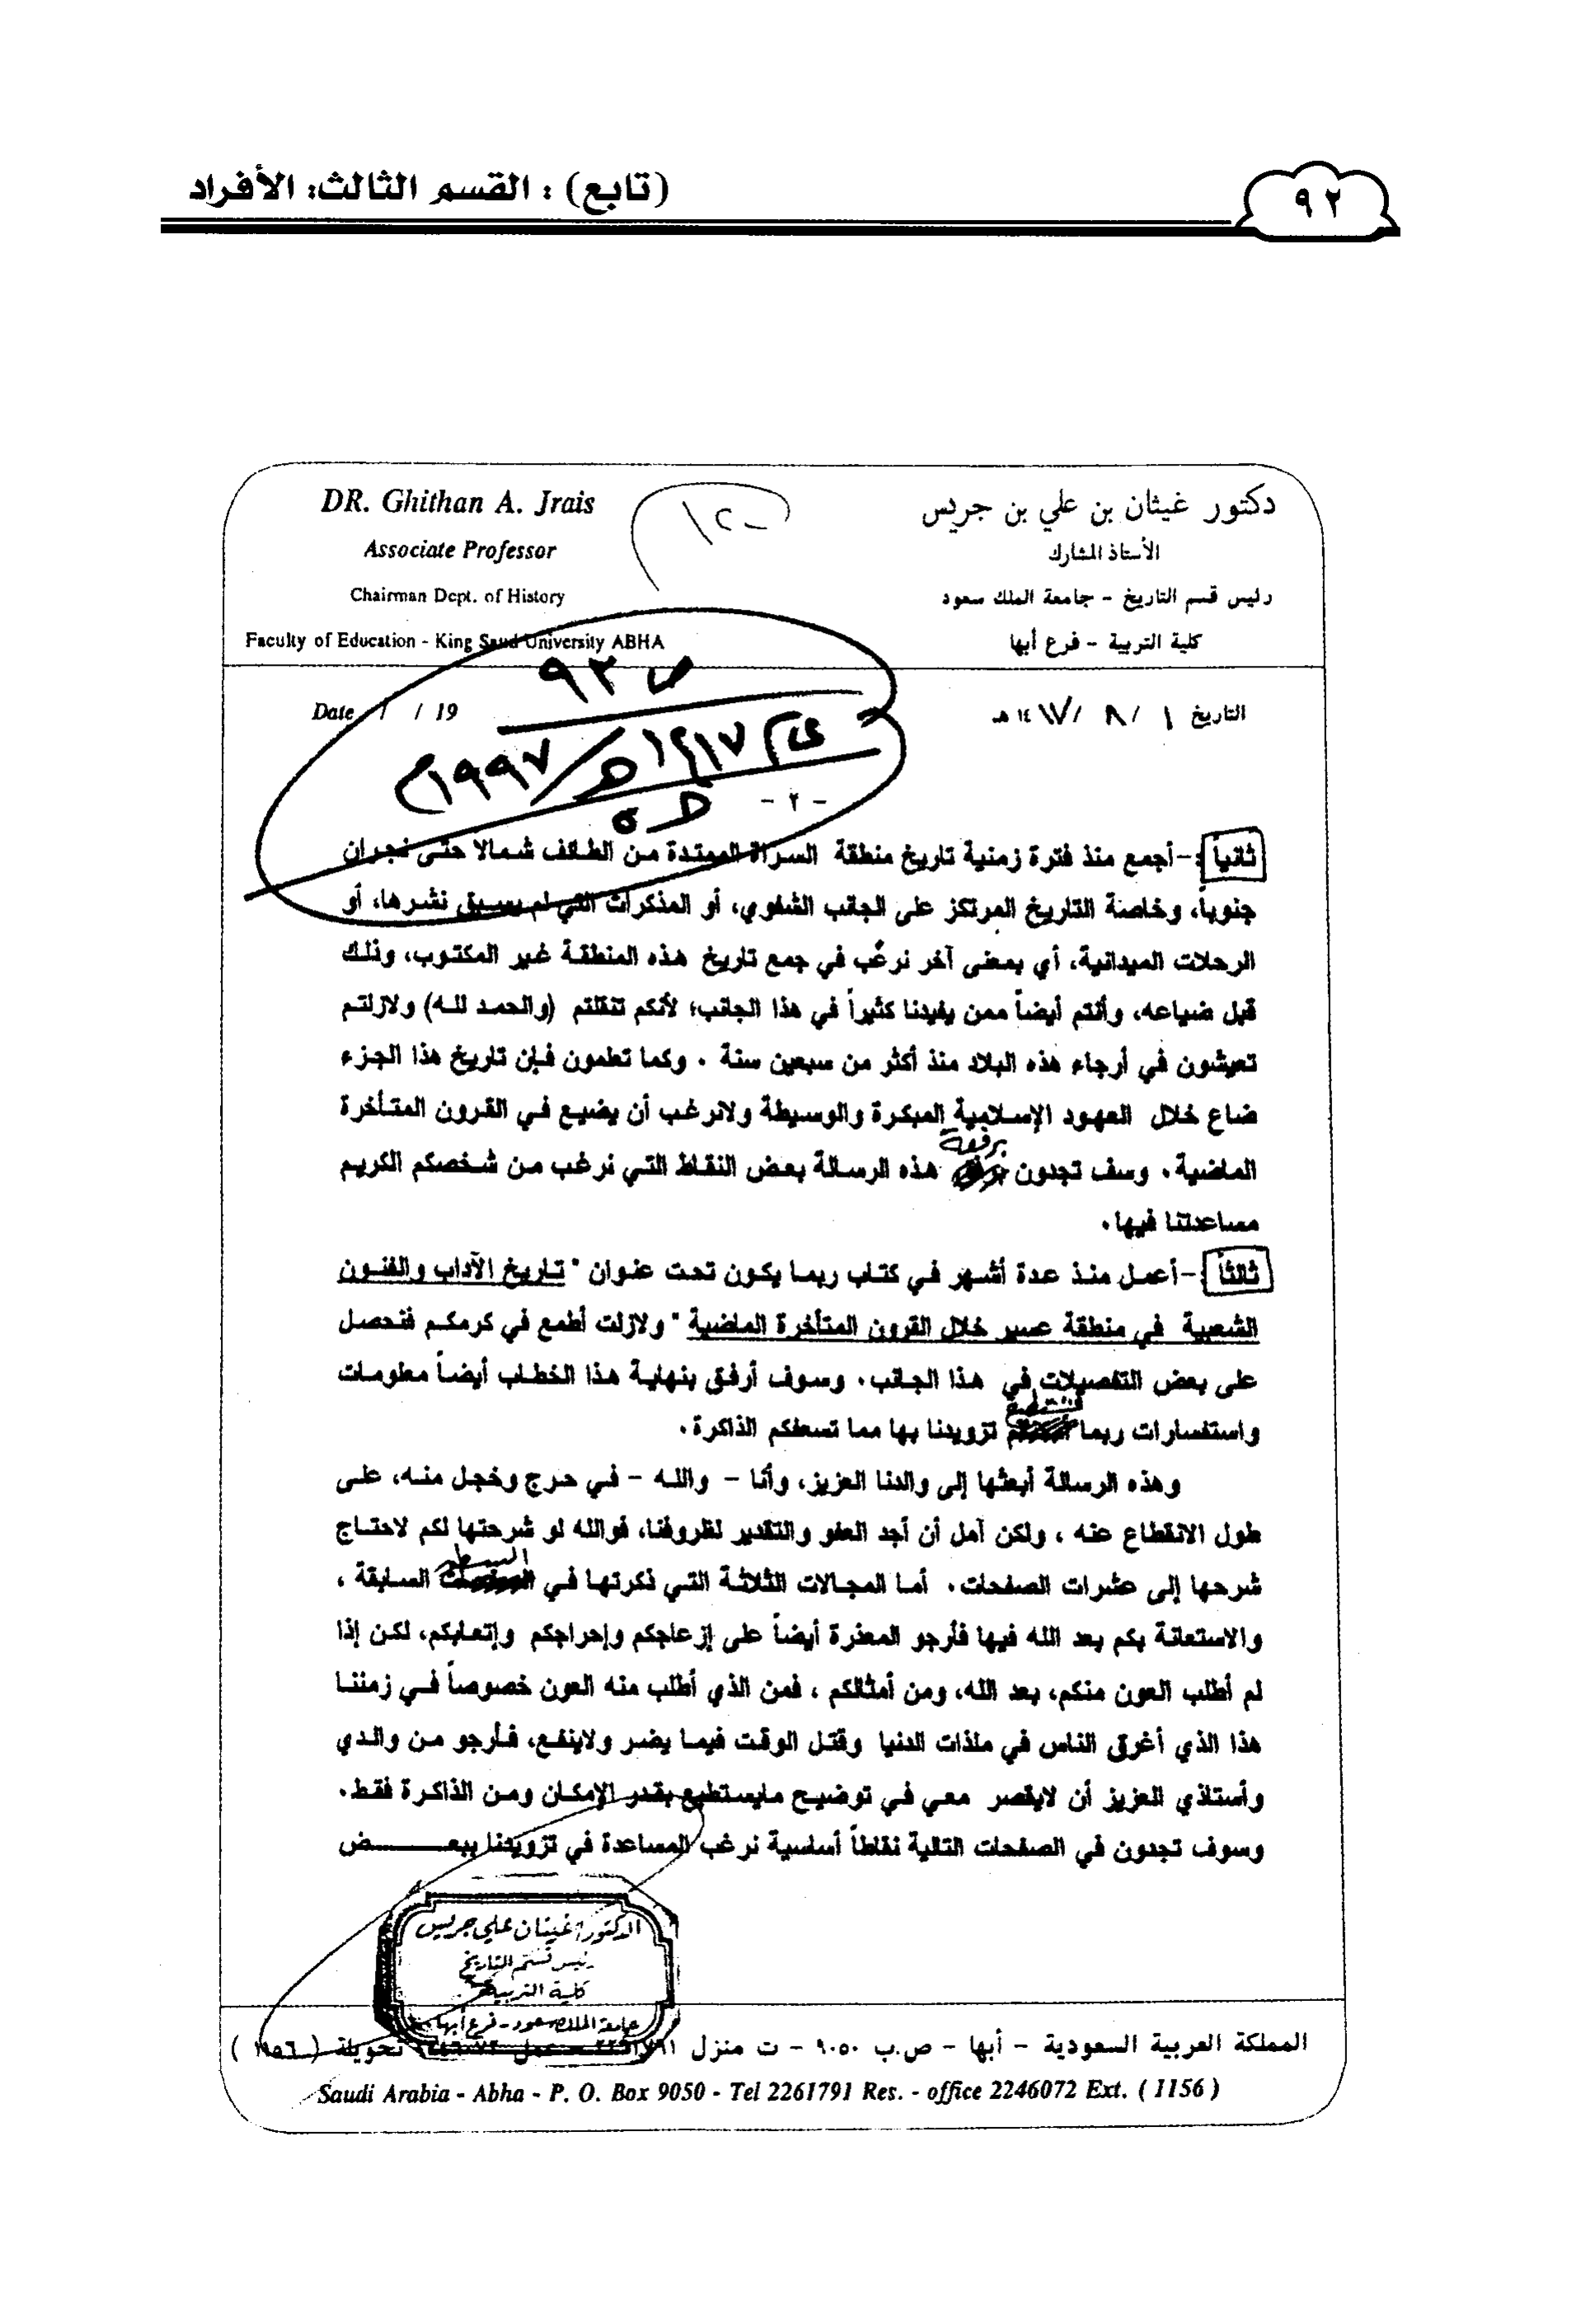 (تابع) : القسم الثالث: الأفراد
٩٢
DR. Ghithan A. Jrais
دكتور غيثان بن علي بن جريس
Associate Professor
الأستاذ المشارك
Chairman Dept. of History
رئيس قسم التاريخ - جامعة الملك سعود
Faculty of Education - King Saud University ABHA
كلية التربية - فرع أبها
ص ٩٢
Date / / 19
التاريخ ١ / ٨ / ١٤١٧هـ
١٤١٧هـ / ١٩٩٧م
- ٢ -
ثانياً :- أجمع منذ فترة زمنية تاريخ منطقة السراة الممتدة من الطائف شمالا حتى نجران
جنوباً، وخاصة التاريخ المرتكز على الجانب الشفوي، أو المذكرات التي لم يسبق نشرها، أو
الرحلات الميدانية، أي بمعنى آخر نرغب في جمع تاريخ هذه المنطقة غير المكتوب، وذلك
قبل ضياعه، وأنتم أيضاً ممن يفيدنا كثيراً في هذا الجانب؛ لأنكم تنقلتم (والحمد لله) ولازلتم
تعيشون في أرجاء هذه البلاد منذ أكثر من سبعين سنة . وكما تعلمون فإن تاريخ هذا الجزء
ضاع خلال العهود الإسلامية المبكرة والوسيطة ولانرغب أن يضيع في القرون المتأخرة
الماضية. وسف تجدون برفقة هذه الرسالة بعض النقاط التي نرغب من شخصكم الكريم
مساعدتنا فيها.
ثالثاً :- أعمل منذ عدة أشهر في كتاب ربما يكون تحت عنوان " تاريخ الآداب والفنون
الشعبية في منطقة عسير خلال القرون المتأخرة الماضية " ولازلت أطمع في كرمكم فنحصل
على بعض التفصيلات في هذا الجانب. وسوف أرفق بنهاية هذا الخطاب أيضاً معلومات
واستفسارات ربما تزويدنا بها مما تسعفكم الذاكرة.
وهذه الرسالة أبعثها إلى والدنا العزيز، وأنا - والله - في حرج وخجل منه، على
طول الانقطاع عنه ، ولكن آمل أن أجد العفو والتقدير لظروفنا، فوالله لو شرحتها لكم لاحتاج
شرحها إلى عشرات الصفحات. أما المجالات الثلاثة التي ذكرتها في السطور السابقة ،
والاستعانة بكم بعد الله فيها فأرجو المعذرة أيضاً على إزعاجكم وإحراجكم وإتعابكم، لكن إذا
لم أطلب العون منكم، بعد الله، ومن أمثالكم ، فمن الذي أطلب منه العون خصوصاً في زمننا
هذا الذي أغرق الناس في ملذات الدنيا وقتل الوقت فيما يضر ولاينفع، فأرجو من والدي
وأستاذي العزيز أن لايقصر معي في توضيح مايستطيع بقدر الإمكان ومن الذاكرة فقط.
وسوف تجدون في الصفحات التالية نقاطاً أساسية نرغب المساعدة في تزويدنا ببعـــــض
الدكتور/ غيثان علي جريس
رئيس قسم التاريخ
كلية التربية
جامعة الملك سعود - فرع أبها
المملكة العربية السعودية - أبها - ص.ب ٩٠٥٠ - ت منزل ٢٢٦١٧٩١ - عمل ٢٢٤٦٠٧٢ تحويلة ( ١١٥٦ )
Saudi Arabia - Abha - P. O. Box 9050 - Tel 2261791 Res. - office 2246072 Ext. ( 1156 )